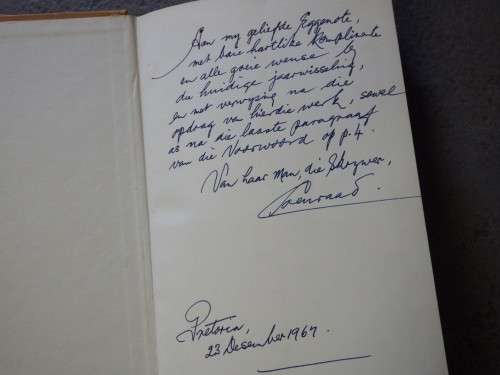 Aan my geliefde Eggenote,
met baie hartlike komplimente
en alle goeie wense by
die huidige jaarwisseling,
en met verwysing na die
opdrag van hierdie werk, sowel
as na die laaste paragraaf
van die Voorwoord op p.4.
Van haar Man, die Skrywer,
Coenraad.
Pretoria,
23 Desember 1967.